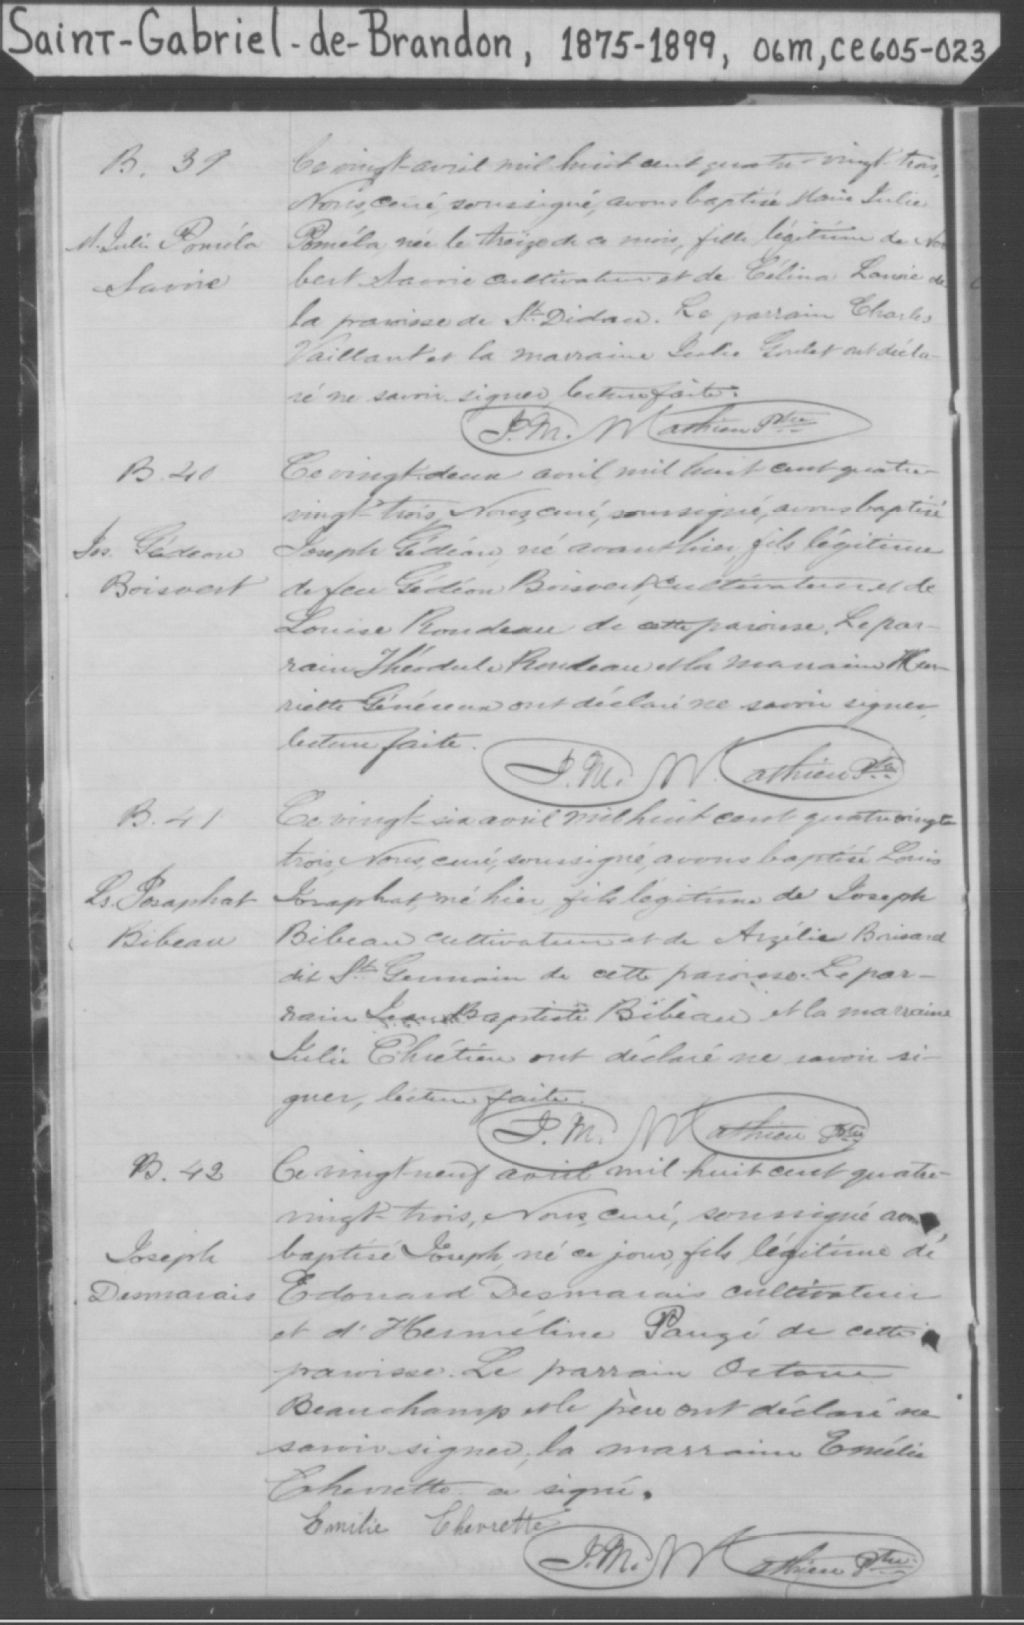 Saint-Gabriel-de-Brandon, 1875-1899, 06m, ce605-023
B. 39
M. Julie Poméla
Savoie
Ce vingt avril mil huit cent quatre-vingt trois,
Nous, curé, soussigné, avons baptisé Marie Julie
Poméla née le treize de ce mois, fille légitime de Nor
bert Savoie cultivateur et de Célina de
la paroisse de St. Didace. Le parrain Charles
Vaillant et la marraine Goulet ont décla-
ré ne savoir signer lecture faite.
J. M. Mathieu Ptre
B. 40
Jos. Gédéon
Boisvert
Ce vingt-deux avril mil huit cent quatre-
vingt-trois, Nous, curé, soussigné, avons baptisé
Joseph Gédéon, né avant hier, fils légitime
de feu Gédéon Boisvert, cultivateur et de
Louise Rondeau de cette paroisse. Le par-
rain Théodule Rondeau et la marraine Hen-
riette Généreux ont déclaré ne savoir signer,
lecture faite.
J. M. Mathieu Ptre
B. 41
Ls. Josaphat
Bibeau
Ce vingt-six avril mil huit cent quatre vingt
trois, Nous, curé, soussigné, avons baptisé Louis
Josaphat, né hier, fils légitime de Joseph
Bibeau cultivateur et de Azélie Brisard
dit St. Germain de cette paroisse. Le par-
rain Jean Baptiste Bibeau et la marraine
Julie Chrétien ont déclaré ne savoir si-
gner, lecture faite.
J. M. Mathieu Ptre
B. 42
Joseph
Desmarais
Ce vingt neuf avril mil huit cent quatre-
vingt-trois, Nous, curé, soussigné
baptisé Joseph, né ce jour, fils légitime de
Edouard Desmarais cultivateur
et d'Herméline Paugé de cette
paroisse. Le parrain Octave
Beauchamp et le père ont déclaré ne
savoir signer, la marraine Emélie
Chevrette a signé.
Emilie Chevrette
J. M. Mathieu Ptre